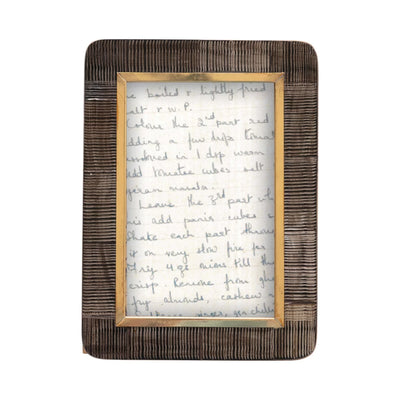 be boiled & lightly fried
salt & W.P.
Colour the 2nd part red
adding a few drops tomat
in 1 dsp warm
add tomatoe cubes salt
garam masala.
Leave the 3rd part wh
this add panir cubes s
Shake each part throu
it on very slow fire for
Fry 4 gr onions till th
crisp. Remove from ghe
fry almonds, cashew n
ginger, gr chilli